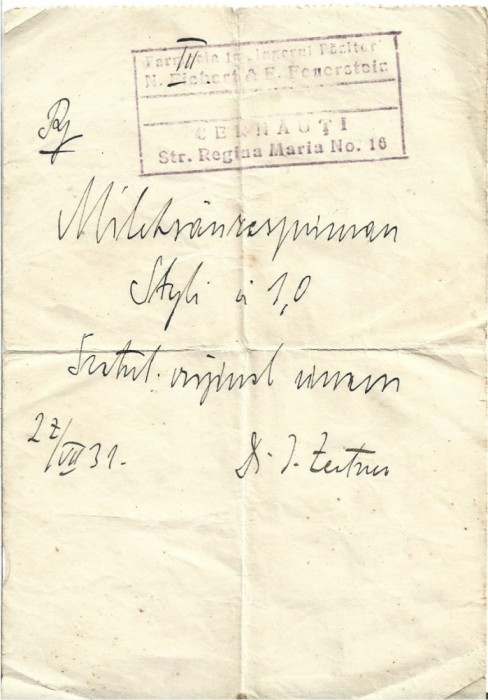 III
Farmacia la Îngerul Păzitor
N. Eichert & E. Feuerstein
CERNĂUȚI
Str. Regina Maria No. 16
Rp
Milchsäurespuman
Styli à 1,0
original unam
27/VII 31. Dr. J. Zentner